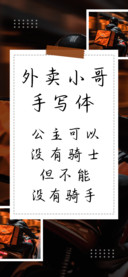 外卖小哥
手写体
公主可以
没有骑士
但不能
没有骑手